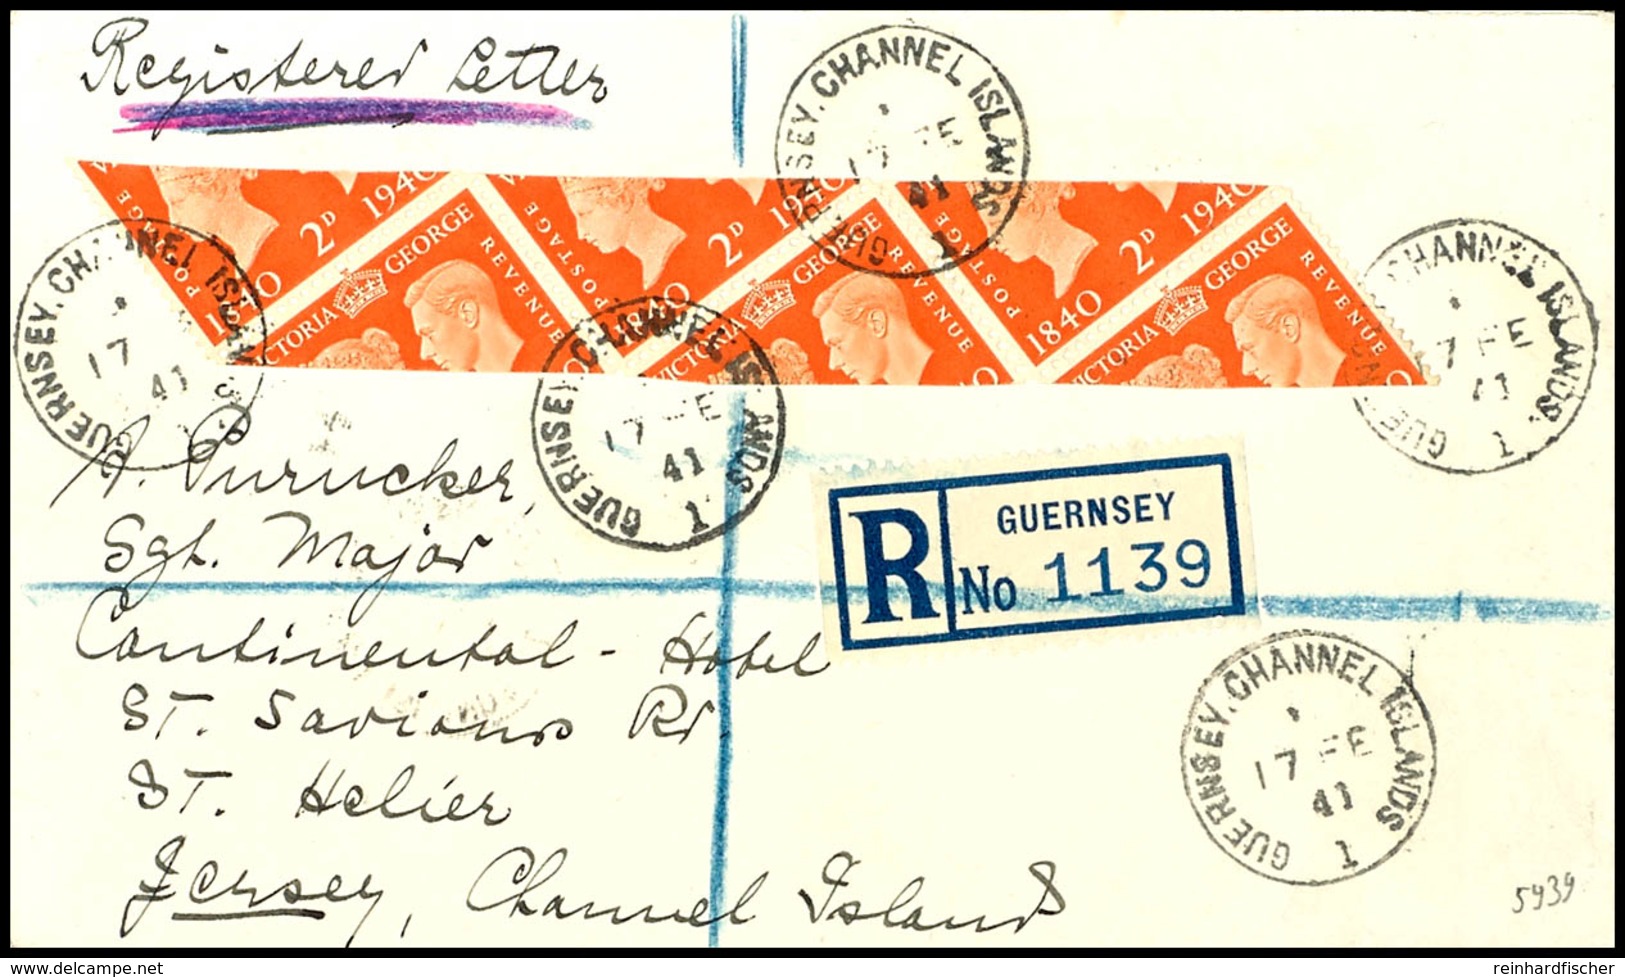 Registered Letter
GUERNSEY. CHANNEL ISLANDS.
17 FE
41
1
POSTAGE 1840 2D 1940
VICTORIA GEORGE REVENUE
POSTAGE 1840 2D 1940
VICTORIA GEORGE REVENUE
POSTAGE 1840 2D 1940
VICTORIA GEORGE REVENUE
GUERNSEY. CHANNEL ISLANDS.
17 FE
41
1
GUERNSEY. CHANNEL ISLANDS.
17 FE
41
1
GUERNSEY. CHANNEL ISLANDS.
17 FE
41
1
R GUERNSEY
No 1139
Purucker,
Sgt. Major
Continental - Hotel
ST. Saviours Rd.
ST. Helier
Jersey, Channel Islands
GUERNSEY. CHANNEL ISLANDS
17 FE
41
1
5939
delcampe.net
reinhardfischer